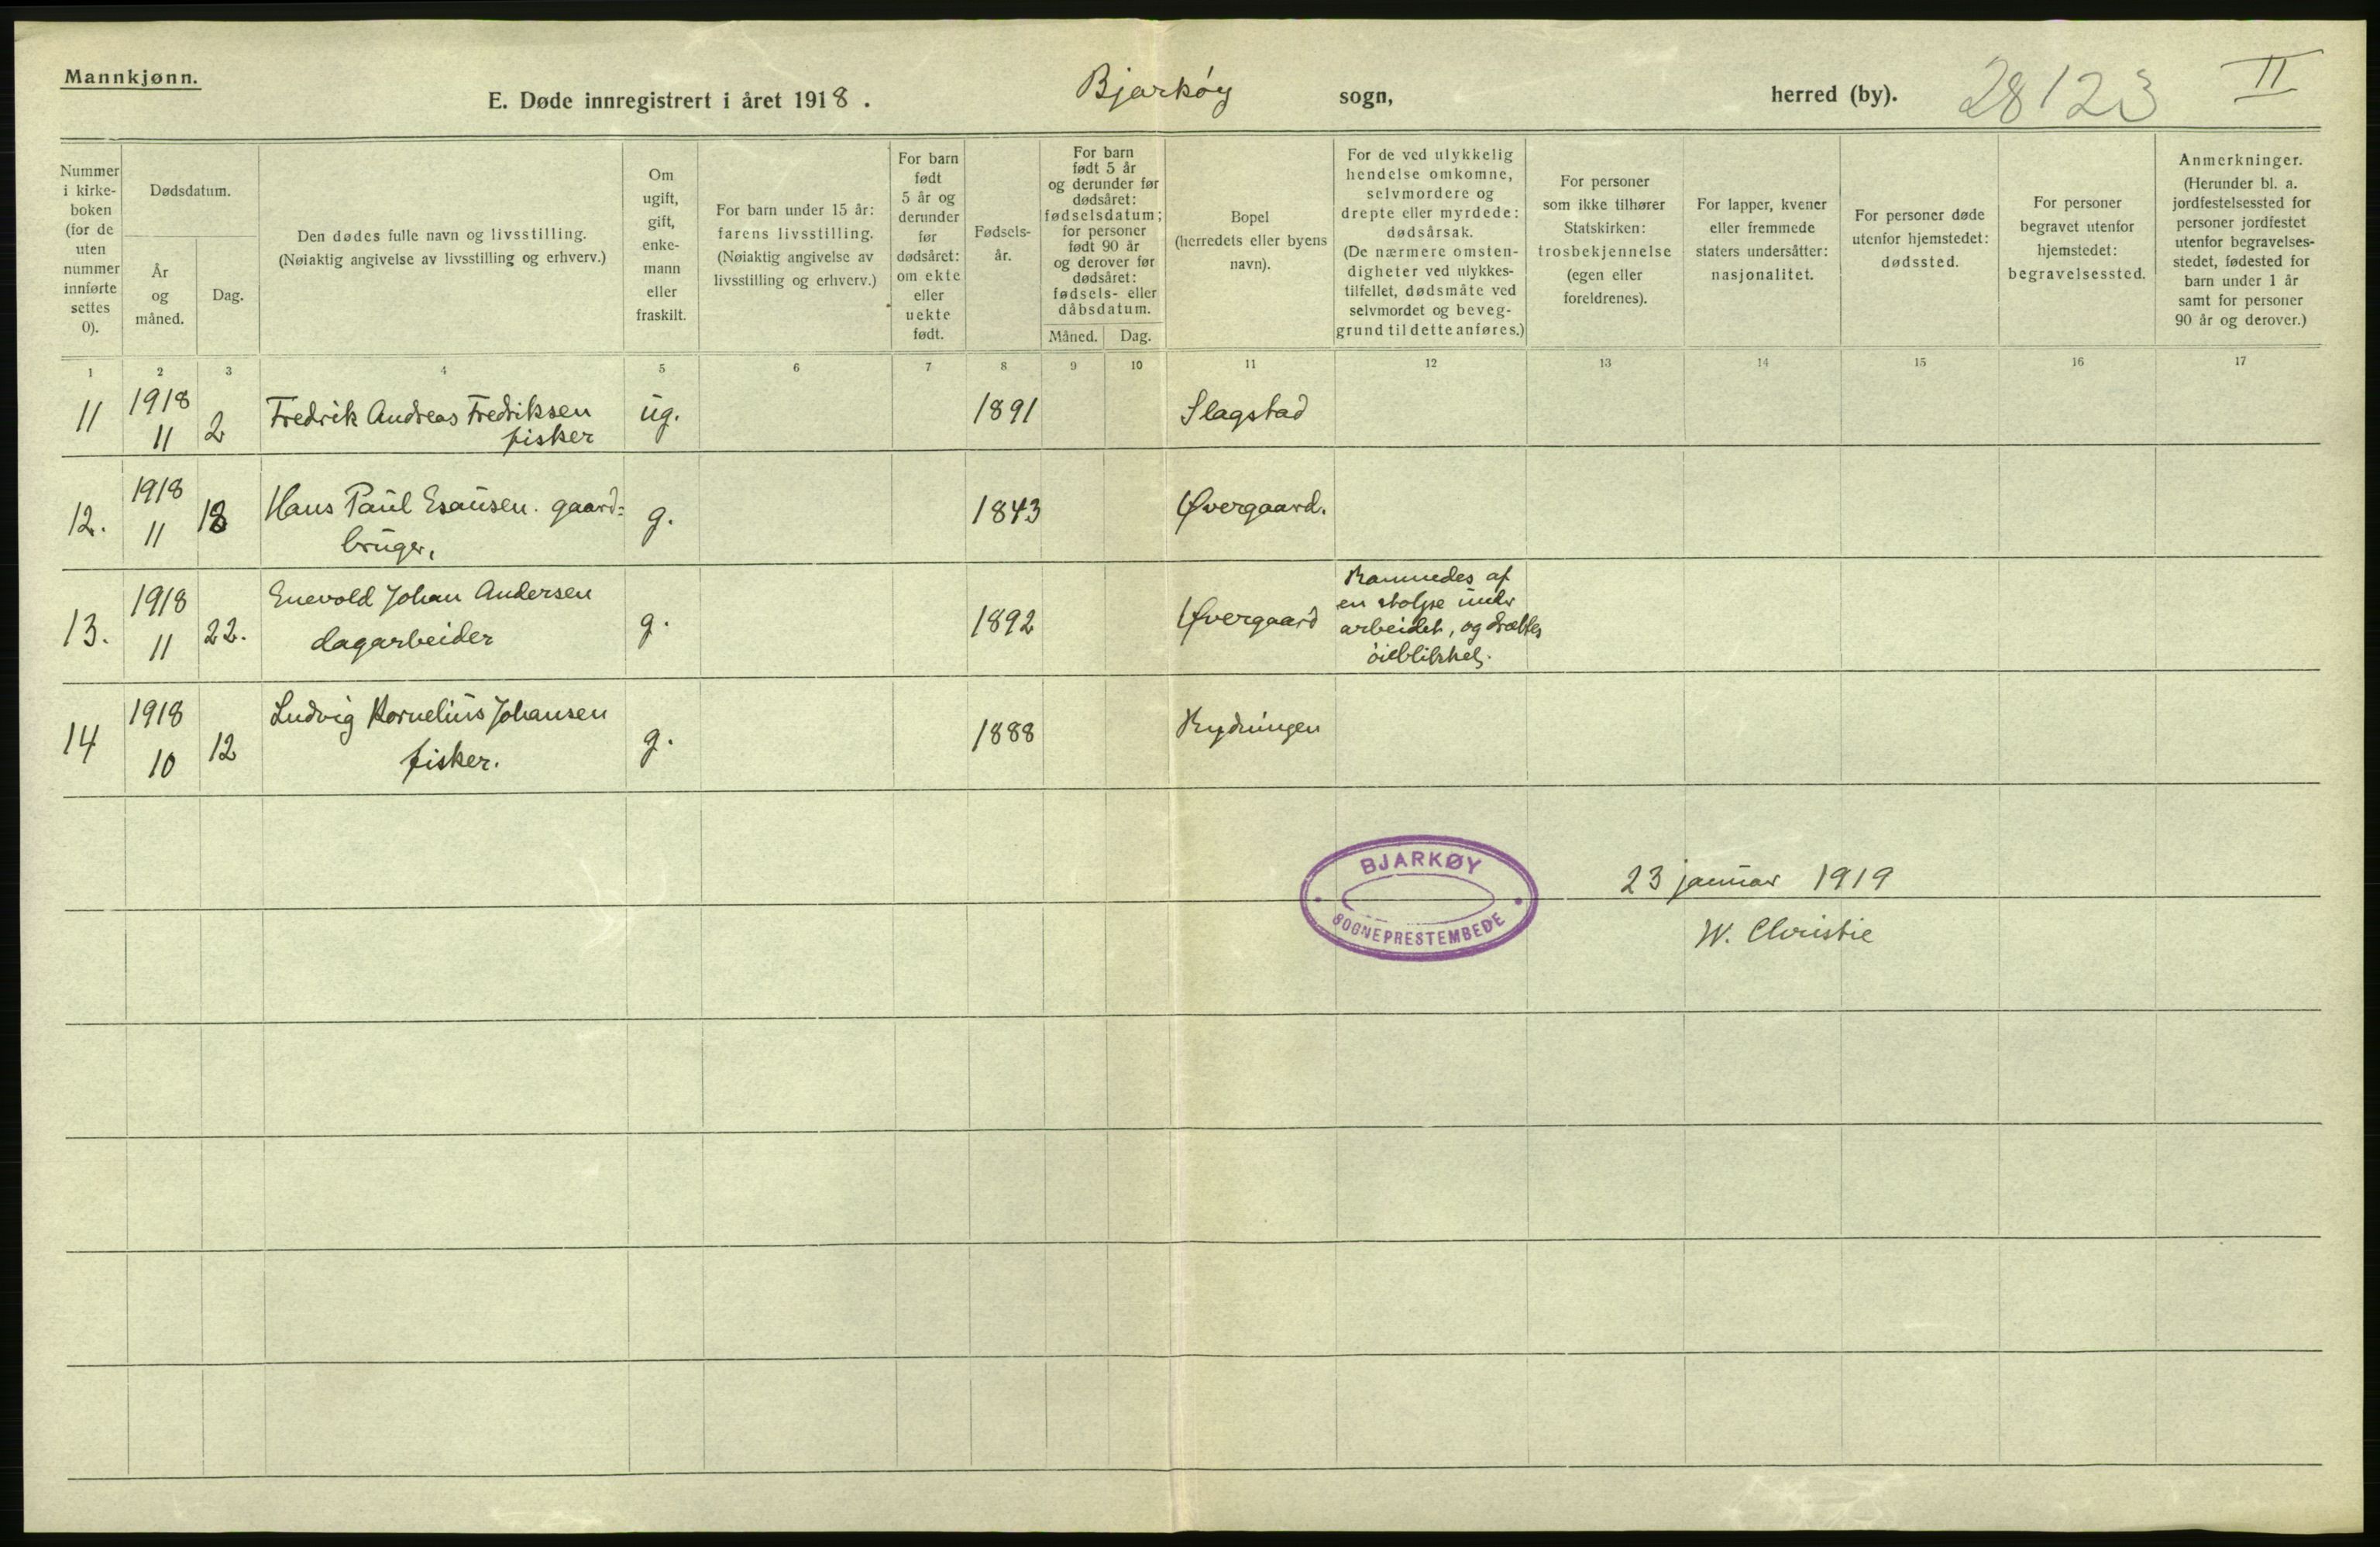 Mannkjønn.
E. Døde innregistrert i året 1918.
Bjarkóy sogn,
herred (by).
28123
II
Nummer
i kirke-
boken
(for de
uten
nummer
innførte
settes
0).
Dødsdatum.
År
og
måned.
Dag.
Den dødes fulle navn og livsstilling.
(Nøiaktig angivelse av livsstilling og erhverv.)
Om
ugift,
gift,
enke-
mann
eller
fraskilt.
For barn under 15 år:
farens livsstilling.
(Nøiaktig angivelse av
livsstilling og erhverv.)
For barn
født
5 år og
derunder
før
dødsåret:
om ekte
eller
uekte
født.
Fødsels-
år.
For barn
født 5 år
og derunder før
dødsåret:
fødselsdatum;
for personer
født 90 år
og derover før
dødsåret:
fødsels- eller
dåbsdatum.
Måned.
Dag.
Bopel
(herredets eller byens
navn).
For de ved ulykkelig
hendelse omkomne,
selvmordere og
drepte eller myrdede:
dødsårsak.
(De nærmere omsten-
digheter ved ulykkes-
tilfellet, dødsmåte ved
selvmordet og beveg-
grund til dette anføres.)
For personer
som ikke tilhører
Statskirken:
trosbekjennelse
(egen eller
foreldrenes).
For lapper, kvener
eller fremmede
staters undersåtter:
nasjonalitet.
For personer døde
utenfor hjemstedet:
dødssted.
For personer
begravet utenfor
hjemstedet:
begravelsessted.
Anmerkninger.
(Herunder bl. a.
jordfestelsessted for
personer jordfestet
utenfor begravelses-
stedet, fødested for
barn under 1 år
samt for personer
90 år og derover.)
1 2 3 4 5 6 7 8 9 10 11 12 13 14 15 16 17
11 1918 11 2 Fredrik Andreas Fredriksen ug. 1891 Slagstad
fisker
12. 1918 11 18 Hans Paul Esausen. gaard= g. 1843 Øvergaard.
bruger,
13. 1918 11 22. Enevold Johan Andersen g. 1892 Øvergaard
dagarbeider
Rammedes af
en stolpe under
arbeidet, og dræbtes
öieblikkel.
14 1918 10 12 Ludvig Kornelius Johansen g. 1888 Rydningen
fisker.
BJARKØY
SOGNEPRESTEMBEDE
23 januar 1919
W. Christie